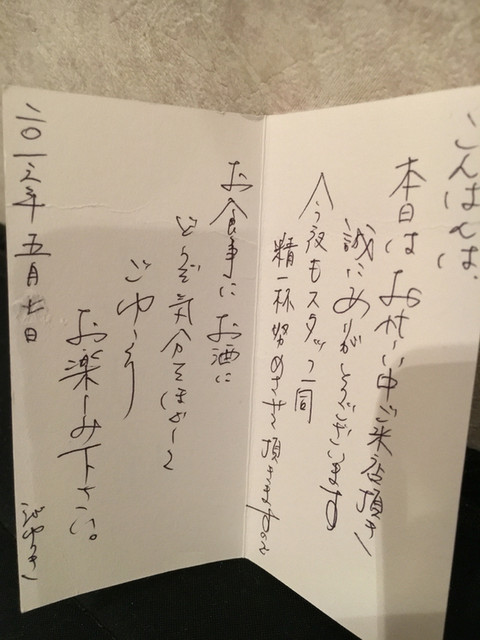 こんばんは、
本日はお忙しい中ご来店頂き
誠にありがとうございます
今夜もスタッフ一同
精一杯努めさせて頂きますので
お食事にお酒に
どうぞ気分をほぐして
ごゆっくり
お楽しみ下さい。
二〇一三年五月七日